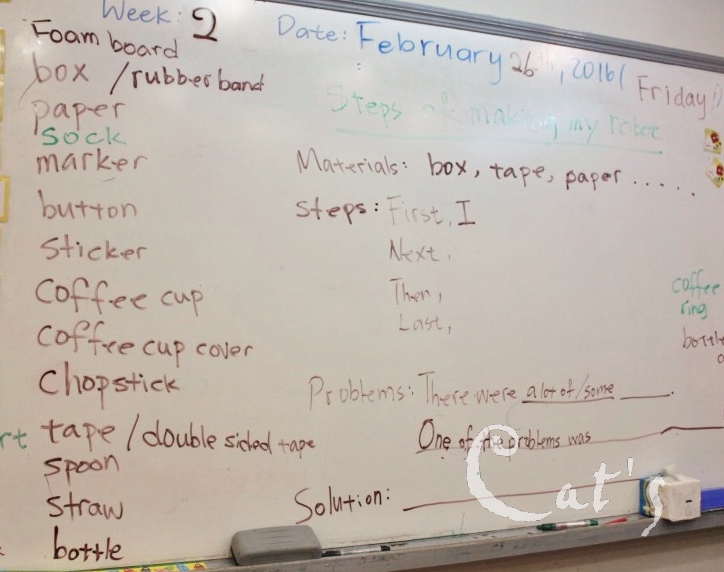 Week: 2
Date: February 26th, 2016 (Friday)
Foam board
box / rubber band
paper
Sock
marker
button
Sticker
Coffee cup
Coffee cup cover
Chopstick
tape / double sided tape
spoon
straw
bottle
rt
Steps of making my robot
Materials: box, tape, paper ......
Steps: First, I
Next,
Then,
Last,
Problems: There were a lot of/some ____.
One of the problems was ____
Solution: ____
coffee
ring
bottle
Cat's